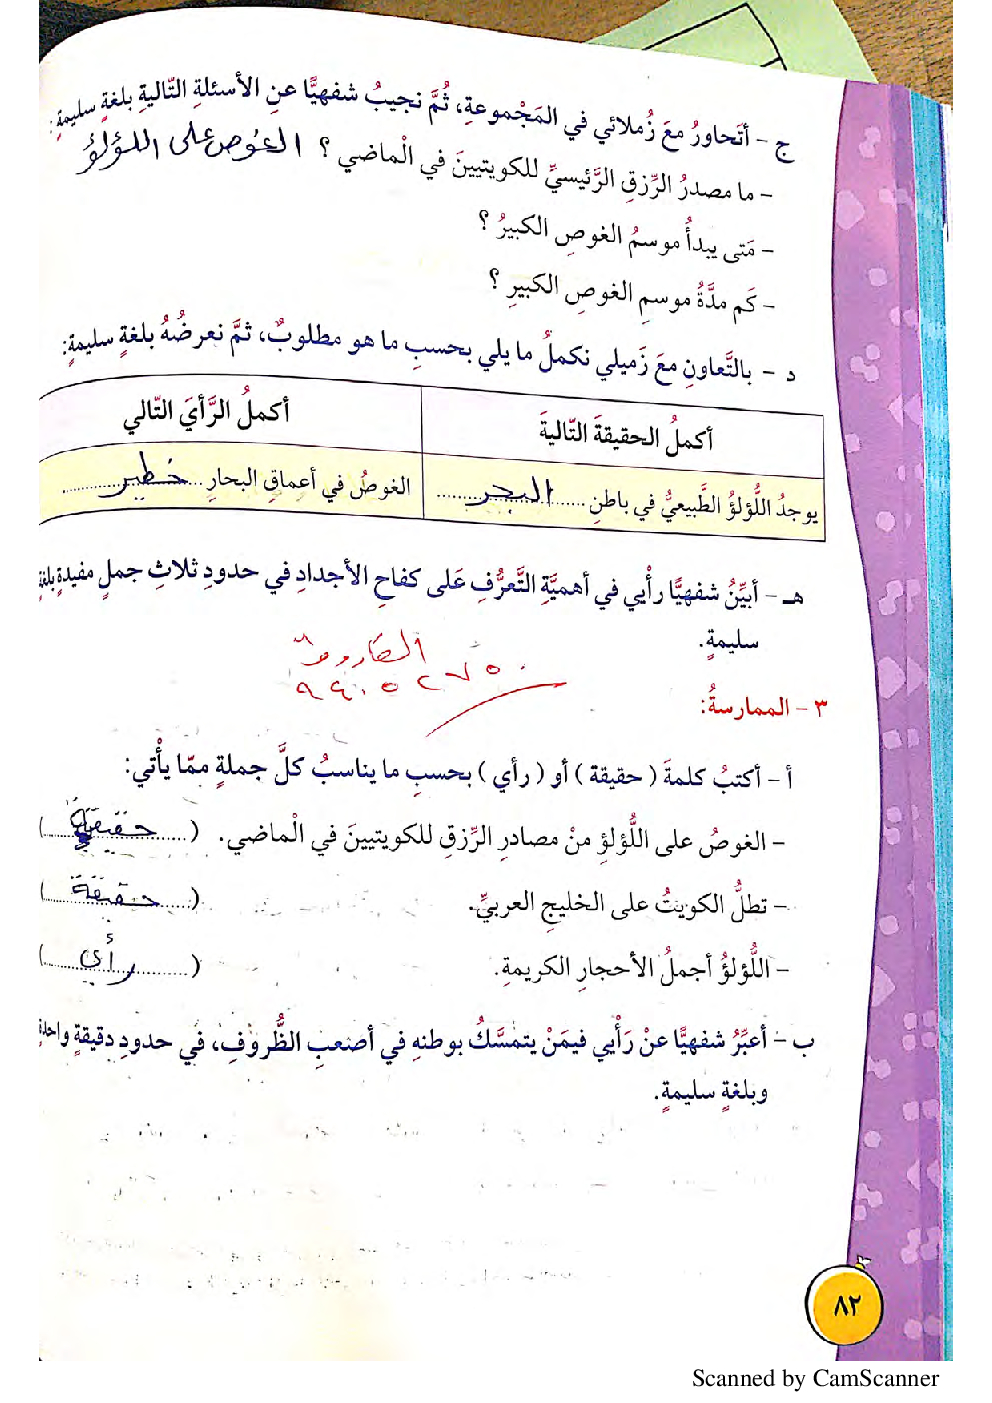 ج - أتَحاورُ معَ زُملائي في المَجْموعةِ، ثُمَّ نجيبُ شفهيًّا عنِ الأسئلةِ التّاليةِ بلغةٍ سليمةٍ:
- ما مصدرُ الرِّزقِ الرَّئيسيِّ للكويتيينَ في الْماضي ؟ الغوص على اللؤلؤ
- مَتى يبدأُ موسمُ الغوصِ الكبيرُ ؟
- كَم مدَّةُ موسمِ الغوصِ الكبيرِ ؟
د - بالتَّعاونِ معَ زَميلي نكملُ ما يلي بحسبِ ما هو مطلوبٌ، ثمَّ نعرضُهُ بلغةٍ سليمةٍ:
أكملُ الحقيقةَ التّاليةَ
أكملُ الرَّأيَ التّالي
يوجدُ اللُّؤلؤُ الطَّبيعيُّ في باطنِ ......البحر......
الغوصُ في أعماقِ البحارِ ......خطير......
هـ - أبيِّنُ شفهيًّا رأْيي في أهميَّةِ التَّعرُّفِ عَلى كفاحِ الأجدادِ في حدودِ ثلاثِ جملٍ مفيدةٍ بلغةٍ
سليمةٍ.
٩٩٠٥٢٧٥٠
٣ - الممارسةُ:
أ - أكتبُ كلمةَ ( حقيقة ) أو ( رأي ) بحسبِ ما يناسبُ كلَّ جملةٍ ممّا يأْتي:
- الغوصُ على اللُّؤلؤِ منْ مصادرِ الرِّزقِ للكويتيينَ في الْماضي. (......حقيقة......)
- تطلُّ الكويتُ على الخليجِ العربيِّ. (......حقيقة......)
- اللُّؤلؤُ أجملُ الأحجارِ الكريمةِ. (......رأي......)
ب - أعبِّرُ شفهيًّا عنْ رَأْيي فيمَنْ يتمسَّكُ بوطنهِ في أصعبِ الظُّروفِ، في حدودِ دقيقةٍ واحدةٍ
وبلغةٍ سليمةٍ.
٨٢
Scanned by CamScanner